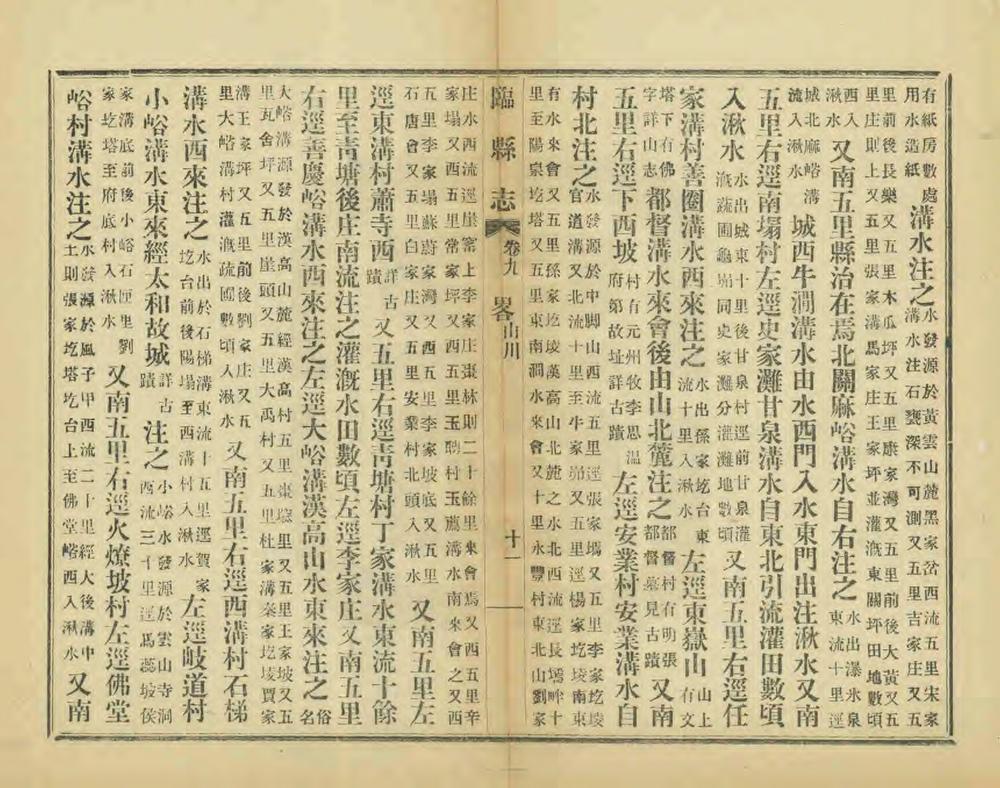 有紙房數處
用水造紙
溝水注之
水發源於黃雲山麓黑家岔西流五里宋家
溝水注石甕深不可測又五里吉家庄又五
里前後長樂又五里木瓜坪又五里康家灣又五里前後大黃又五
里庄則上又五里張家溝馬家庄王家坪並灌漑東關坪田地數頃
西入
湫水
又南五里縣治在焉北關麻峪溝水自右注之
水出瀑水泉
東流十里逕
城北麻峪溝
流入湫水
城西牛澗溝水由水西門入水東門出注湫水又南
五里右逕南塌村左逕史家灘甘泉溝水自東北引流灌田數頃
入湫水
水出城東十里後甘泉村逕前甘泉灌
漑蔬圃龜峁同史家灘分灌灘地數頃
又南五里右逕任
家溝村善圈溝水西來注之
水出孫家圪台東
流十里入湫水
左逕東嶽山
山上
有文
塔下有佛
字詳山志
都督溝水來會後由山北麓注之
都督村有明張
都督墓見古蹟
又南
五里右逕下西坡
村有元州牧李思溫
府第故址詳古蹟
左逕安業村安業溝水自
村北注之
水發源於中脚山西流五里逕張家塢又五里李家圪堎
官道溝又北流十里至牛家峁又五里逕楊家圪堎南東
有水來會又五里孫家圪堎漢高山北麓之水北西流逕長塢畔十
里至陽泉圪塔又五里東南澗水來會又十里永豐村東北山劉家
臨縣志 卷九 畧山川 十一
庄水西流逕崖窰上李家庄棗林則二十餘里來會焉又西五里辛
家塌又西五里常家坪又西五里玉鵰村玉薦溝水南來會之又西
五里李家塌蘇蔚家灣又西里李家坡底又五里
石唐會又五里白家庄又五里安業村北頭入湫水
又南五里左
逕東溝村蕭寺西
詳古
蹟
又五里右逕靑塘村丁家溝水東流十餘
里至靑塘後庄南流注之灌漑水田數頃左逕李家庄又南五里
右逕善慶峪溝水西來注之左逕大峪溝漢高山水東來注之
俗
名
大峪溝源發於漢高山麓經漢高村五里棗墕里又五里王家坡又五
里瓦舍坪又五里崖頭又五里大禹村又五里杜家溝秦家圪堎賈家
溝王家坪又五里前後劉家庄又五
里大峪溝村灌漑疏圃數頃入湫水
又南五里右逕西溝村石梯
溝水西來注之
水出於石梯溝東流十五里逕賀家
圪台前後陽塌至西溝村入湫水
左逕岐道村
小峪溝水東來經太和故城
詳古
蹟
注之
小峪水發源於雲山寺洞
西流三十里逕馬蕊坡侯
家溝底前後小峪石匣里劉
家圪塔至府底村入湫水
又南五里右逕火燎坡村左逕佛堂
峪村溝水注之
水發源於風子甲西流二十里經大後溝中
土則張家圪塔圪台上至佛堂峪西入湫水
又南